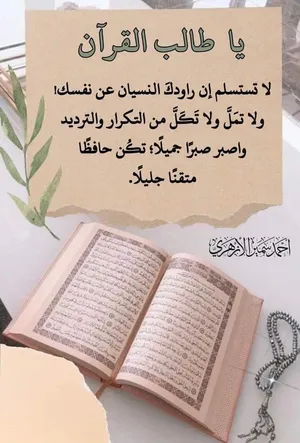 يا طالب القرآن
لا تستسلم إن راودك النسيان عن نفسك!
ولا تمَلَّ ولا تَكَلَّ من التكرار والترديد
واصبر صبرًا جميلًا؛ تكُن حافظًا
متقنًا جليلًا.
احمد سمير الازهري